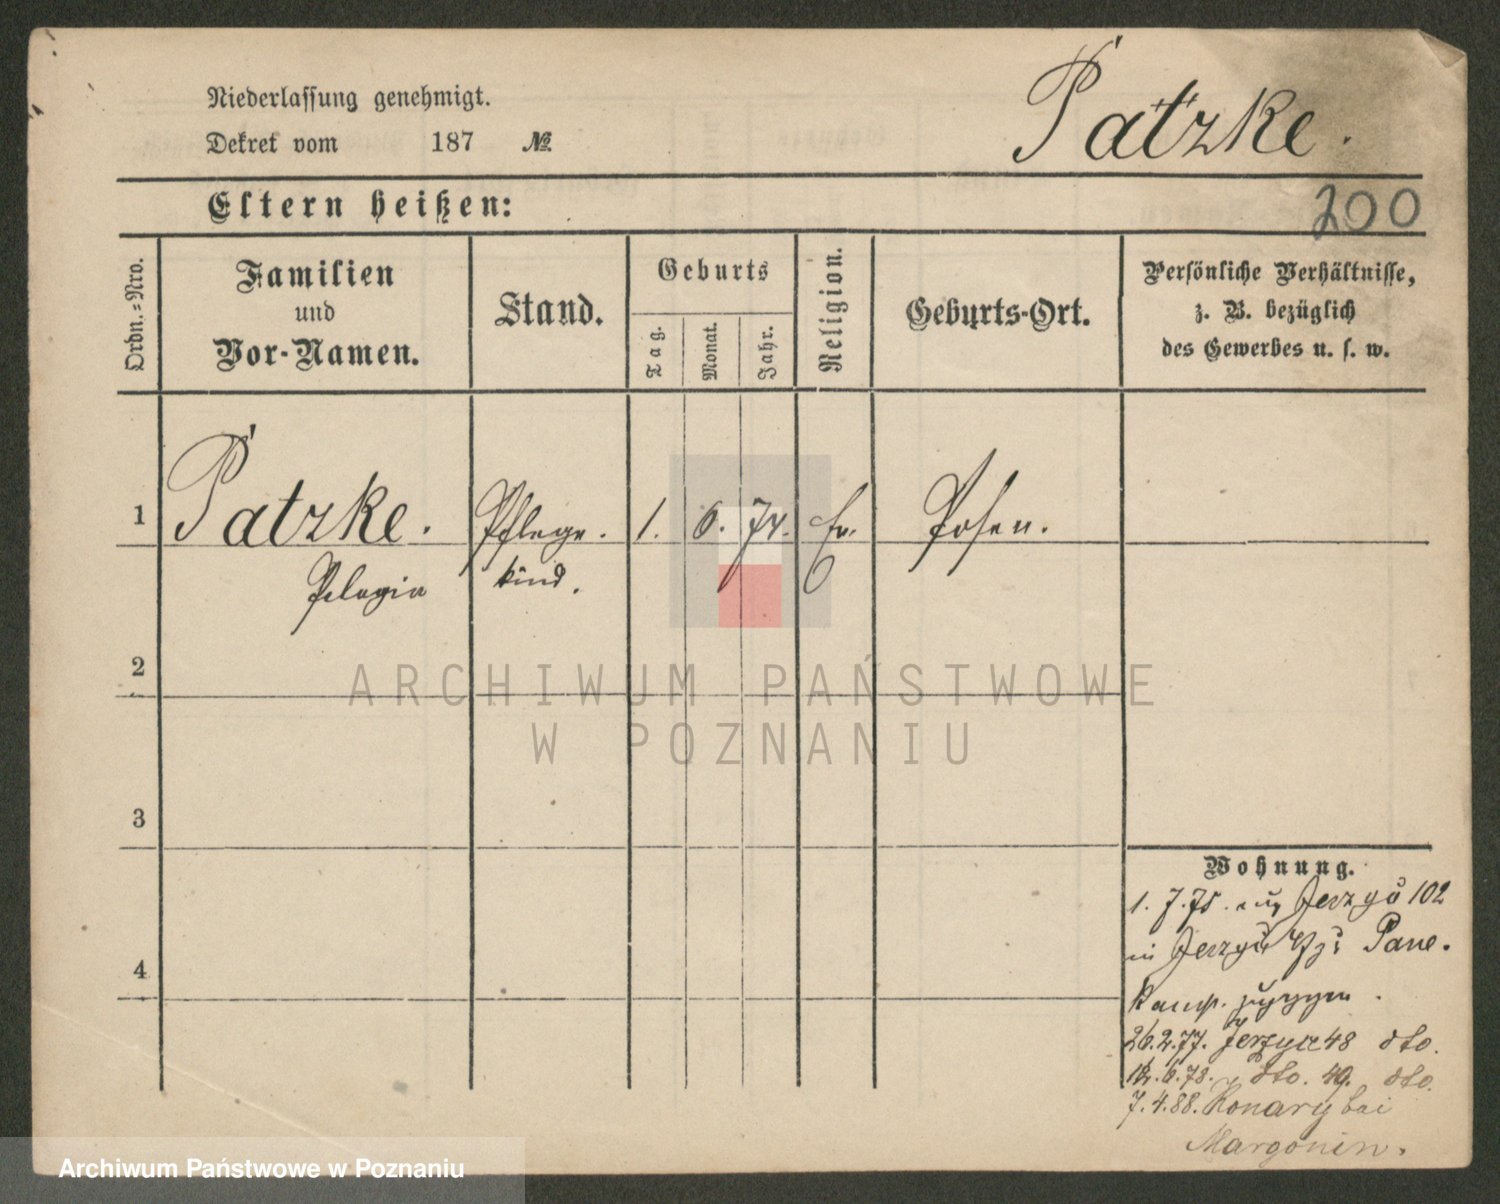 Niederlassung genehmigt.
Dekret vom 187 №
Patzke.
200
Eltern heißen:
Ordn.-Nro.
Familien
und
Vor-Namen.
Stand.
Geburts
Tag.
Monat.
Jahr.
Religion.
Geburts-Ort.
Persönliche Verhältnisse,
z. B. bezüglich
des Gewerbes u. s. w.
1 Patzke. Pflege. 1. 6. 74. Ev. Posen.
Pelagia kind.
2
ARCHIWUM PAŃSTWOWE
W POZNANIU
3
Wohnung.
1. 7. 75. 102
in
4
26.2.77. 48 dto.
6.78. dto. 49. dto.
7.4.88. Konary bei
Margonin.
Archiwum Państwowe w Poznaniu